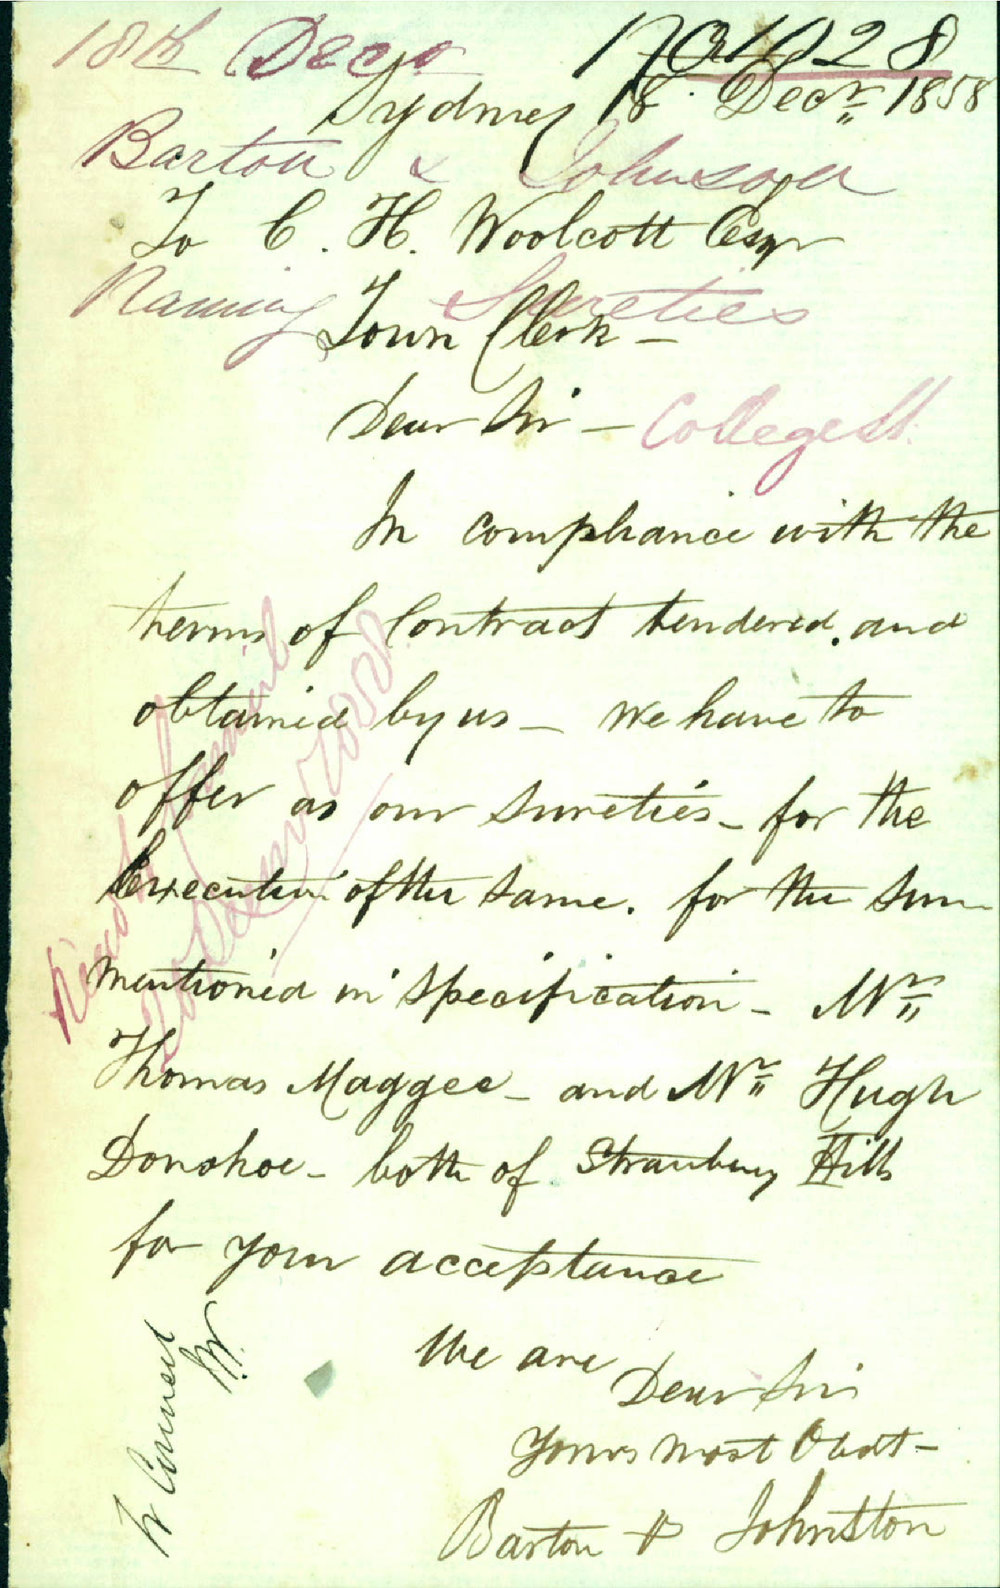 18th Decr No 1028
Sydney 18 Decr 1858
Barton & Johnson
To C. H. Woolcott Esqr
Naming Sureties
Town Clerk -
Dear Sir - College St
In compliance with the
terms of Contract tendered. and
obtained by us - We have to
offer as our sureties - for the
Execution of the same. for the sum
mentioned in specification - Mr
Thomas Maggee - and Mr Hugh
Donohoe - both of Strawberry Hills
for your acceptance
We are
Dear Sir
Yours most Obdt -
Barton & Johnston
Read
20 Decr 1858